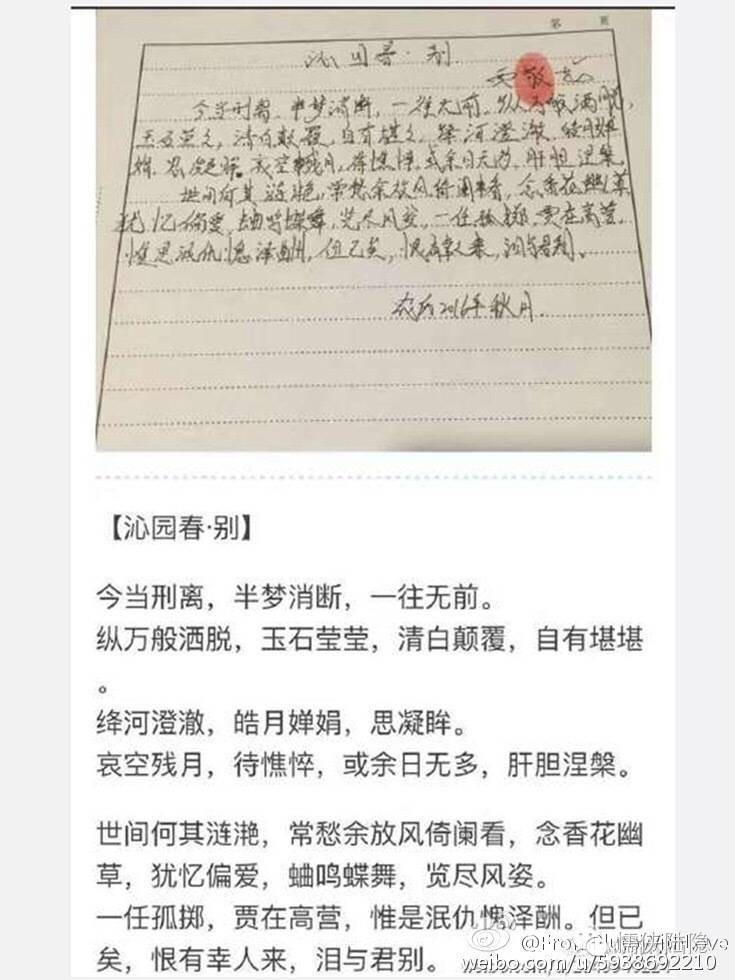 第 页
沁园春·别
贾敬龙
今当刑离，半梦消断，一往无前，纵万般洒脱，
玉石莹莹，清白颠覆，自有堪堪，绛河澄澈，皓月婵
娟，思凝眸。哀空残月，待憔悴，或余日无多，肝胆涅槃。
世间何其涟滟，常愁余放风倚阑看，念香花幽草
犹忆偏爱，蛐鸣蝶舞，览尽风姿，一任孤掷，贾在高营，
惟是泯仇愧泽酬，但已矣，恨有幸人来，泪与君别。
秋月
【沁园春·别】
今当刑离，半梦消断，一往无前。
纵万般洒脱，玉石莹莹，清白颠覆，自有堪堪
。
绛河澄澈，皓月婵娟，思凝眸。
哀空残月，待憔悴，或余日无多，肝胆涅槃。
世间何其涟滟，常愁余放风倚阑看，念香花幽
草，犹忆偏爱，蛐鸣蝶舞，览尽风姿。
一任孤掷，贾在高营，惟是泯仇愧泽酬。但已
矣，恨有幸人来，泪与君别。
weibo.com/u/5938692210